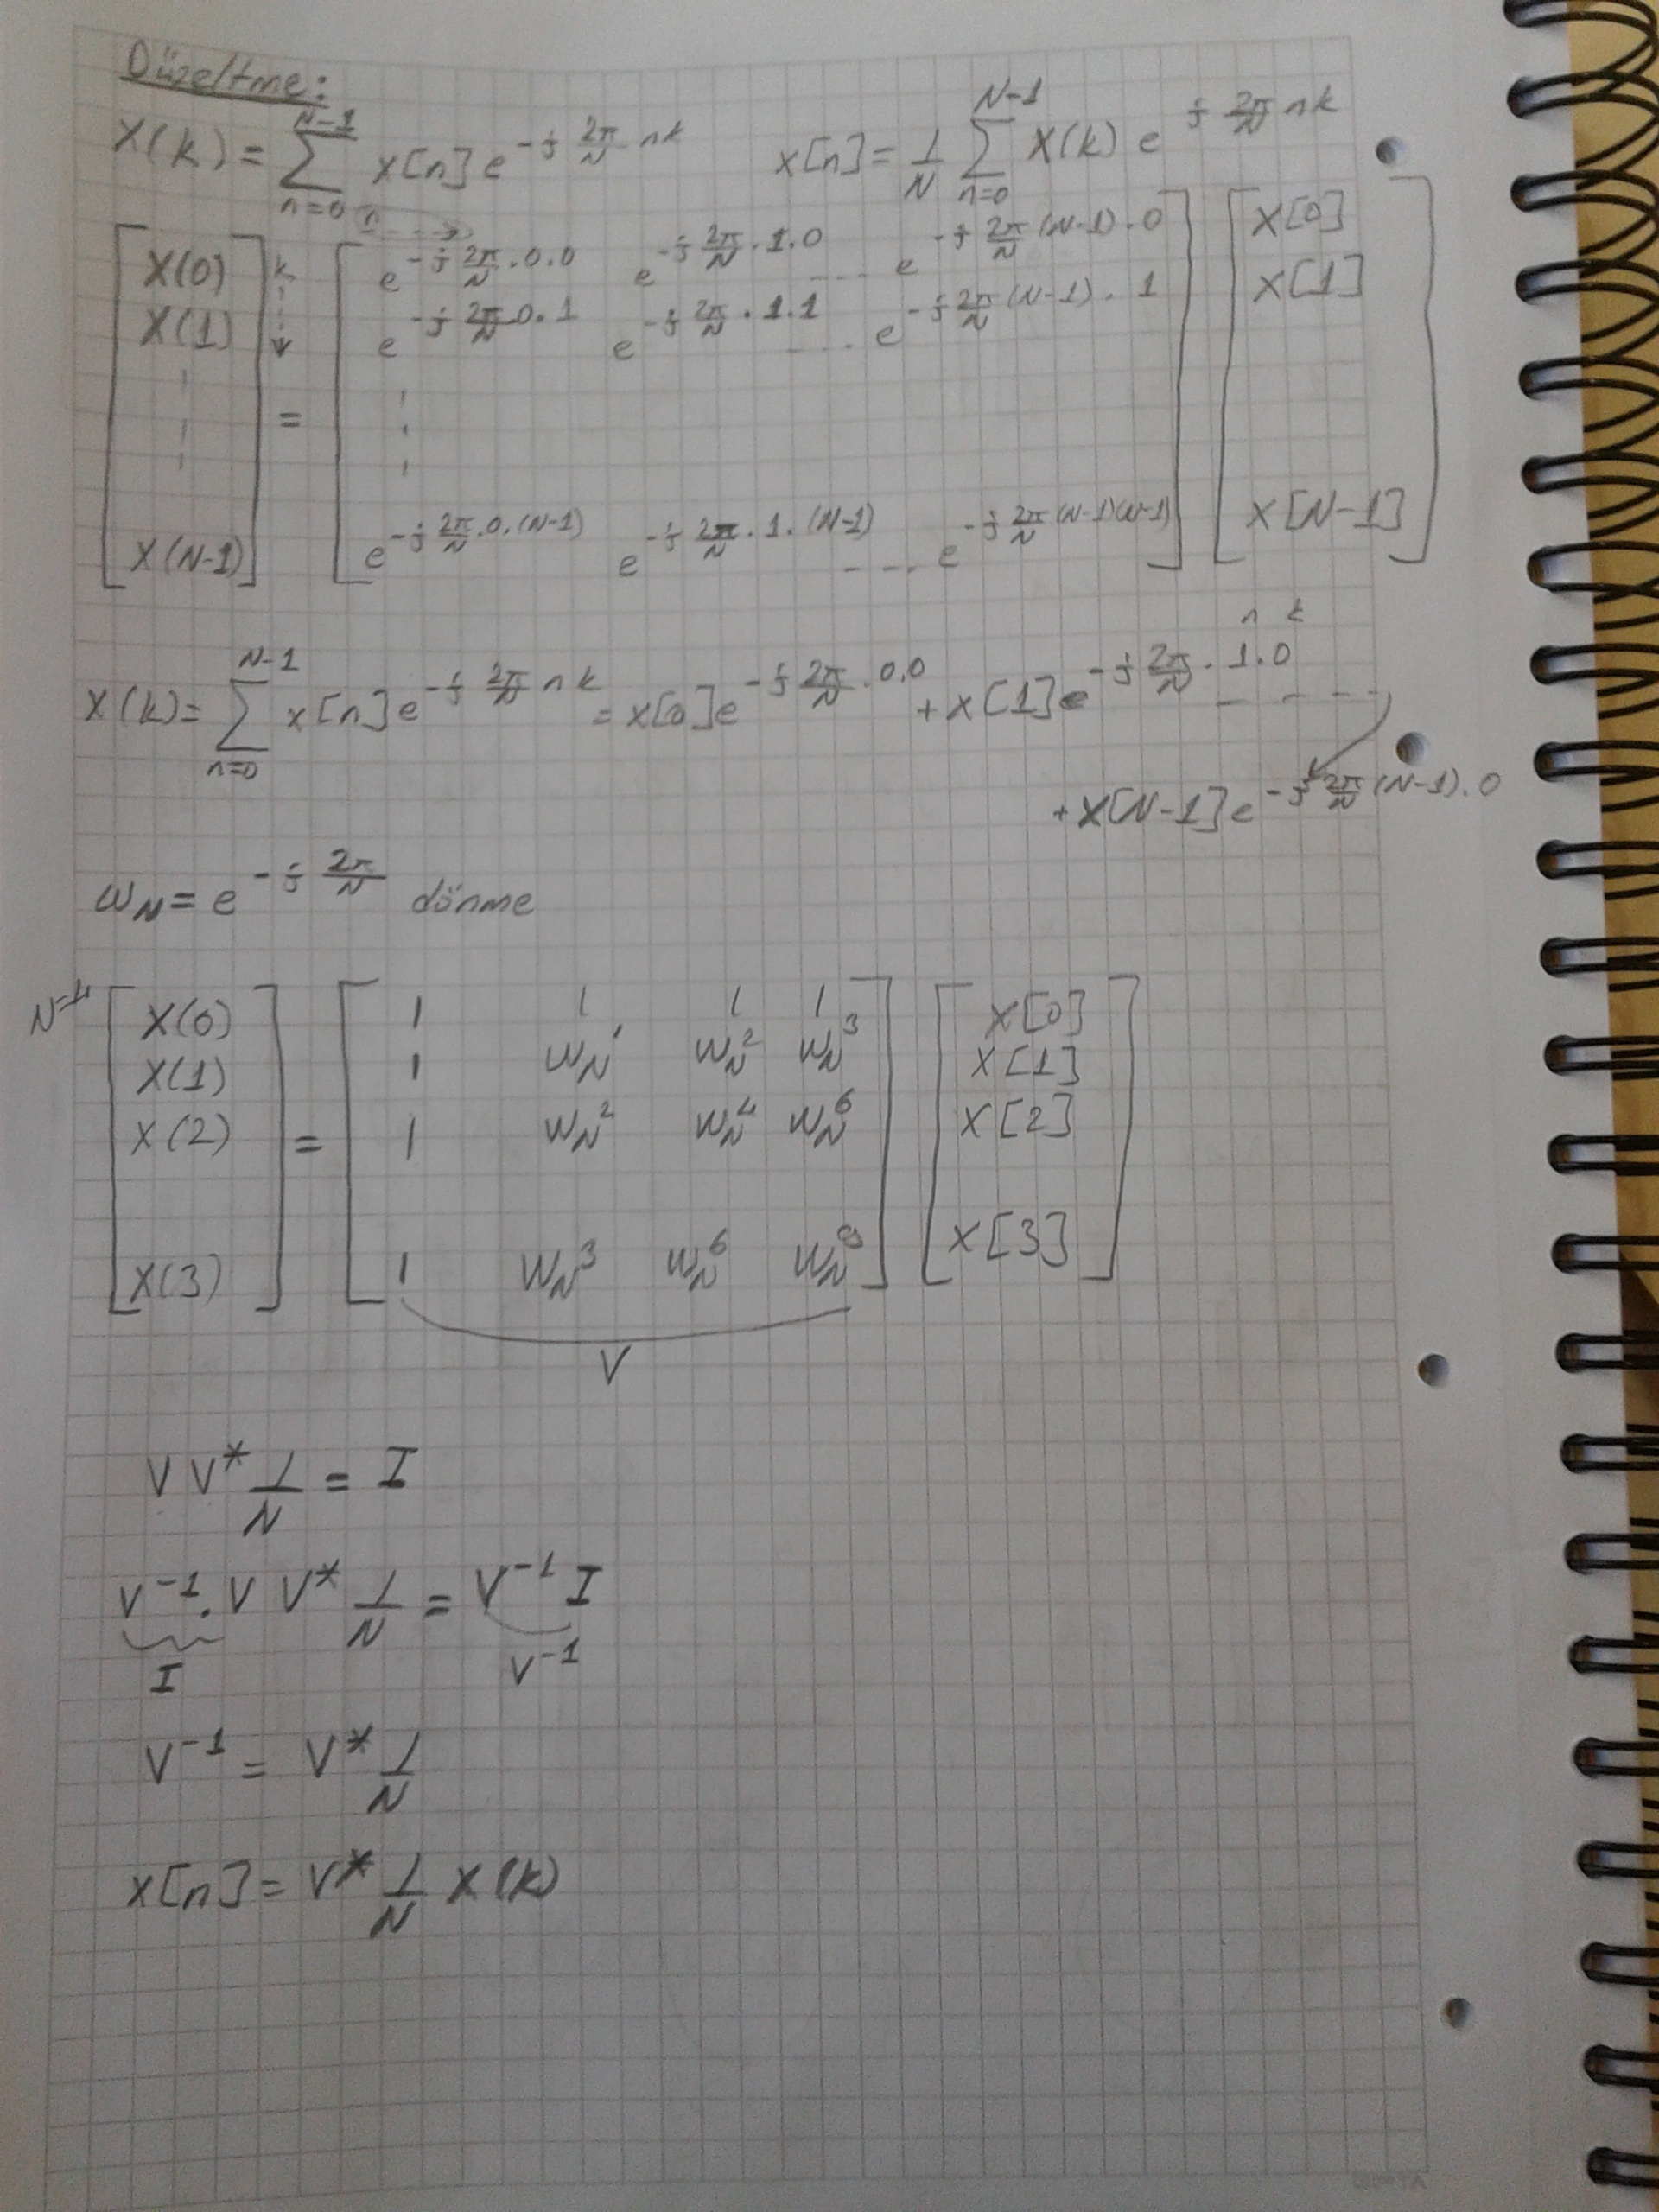 Düzeltme:
X(k) = \sum_{n=0}^{N-1} x[n] e^{-j \frac{2π}{N} nk}    x[n] = \frac{1}{N} \sum_{n=0}^{N-1} X(k) e^{j \frac{2π}{N} nk}
n ---->
k ---->
X(0)    e^{-j \frac{2π}{N} . 0.0}    e^{-j \frac{2π}{N} . 1.0} .... e^{-j \frac{2π}{N} (N-1) . 0}    x[0]
X(1)    e^{-j \frac{2π}{N} 0.1}    e^{-j \frac{2π}{N} . 1.1} .... e^{-j \frac{2π}{N} (N-1) . 1}    x[1]
=
X(N-1)    e^{-j \frac{2π}{N} . 0 . (N-1)}    e^{-j \frac{2π}{N} . 1 . (N-1)} ---. e^{-j \frac{2π}{N} (N-1)(N-1)}    x[N-1]
n k
X(k) = \sum_{n=0}^{N-1} x[n] e^{-j \frac{2π}{N} nk} = x[0] e^{-j \frac{2π}{N} . 0.0} + x[1] e^{-j \frac{2π}{N} . 1.0} -----
+ x[N-1] e^{-j \frac{2π}{N} (N-1) . 0}
ω_N = e^{-j \frac{2π}{N}} dönme
N=4
X(0)    1    1    1    1    x[0]
X(1)    1    W_N^1    W_N^2    W_N^3    x[1]
X(2) =    1    W_N^2    W_N^4    W_N^6    x[2]
X(3)    1    W_N^3    W_N^6    W_N^9    x[3]
V
V V* \frac{1}{N} = I
V^{-1} . V V* \frac{1}{N} = V^{-1} I
I    V^{-1}
V^{-1} = V* \frac{1}{N}
x[n] = V* \frac{1}{N} X(k)